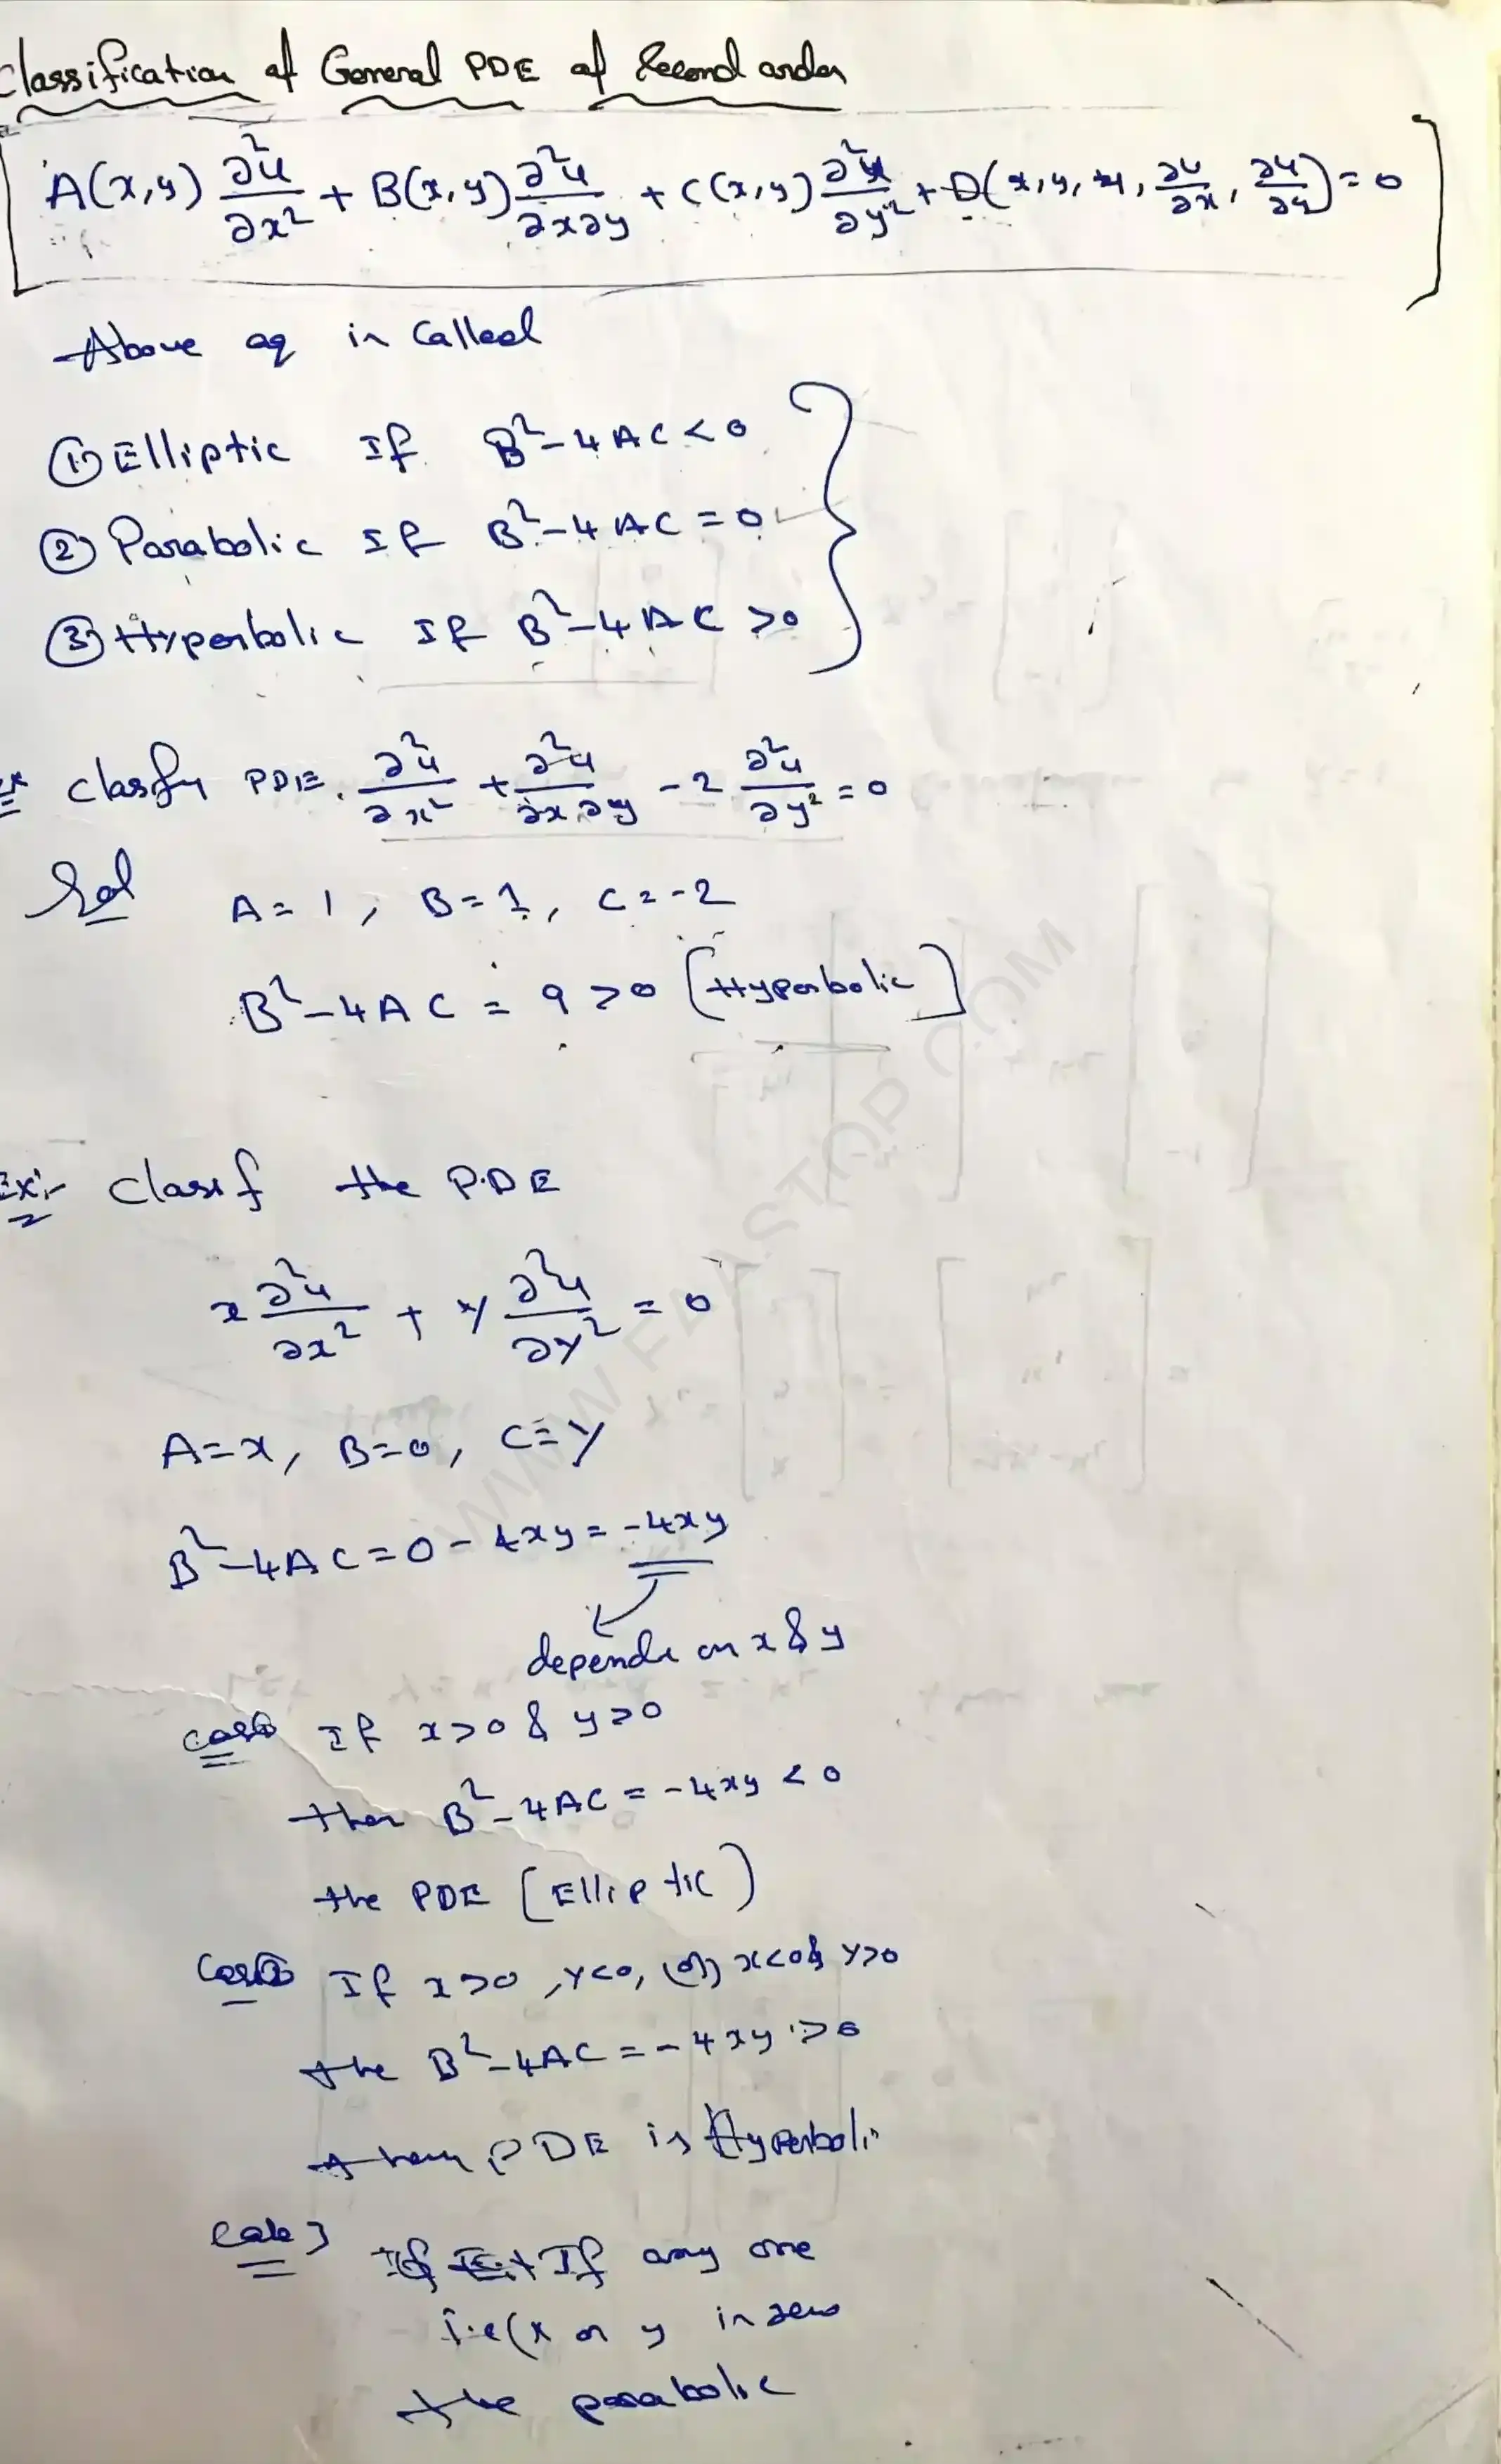 Classification of General PDE of Second order
A(x,y) ∂²u/∂x² + B(x,y) ∂²u/∂x∂y + C(x,y) ∂²u/∂y² + D(x,y,u, ∂u/∂x, ∂u/∂y) = 0
Above eq is Called
① Elliptic If B²-4AC<0
② Parabolic If B²-4AC=0
③ Hyperbolic If B²-4AC>0
Ex Clasfy PDE. ∂²u/∂x² + ∂²u/∂x∂y - 2 ∂²u/∂y² = 0
Sol A=1, B=1, C=-2
B²-4AC = 9>0 [Hyperbolic]
Ex:- Clasif the P.D.E
x ∂²u/∂x² + y ∂²u/∂y² = 0
A=x, B=0, C=y
B²-4AC=0-4xy=-4xy
depends on x & y
case① If x>0 & y>0
then B²-4AC = -4xy < 0
the PDE [Elliptic)
Case② If x>0, y<0, (or) x<0 & y>0
the B²-4AC = -4xy >0
then PDE is Hyperboli
Case 3 If any one
i.e(x or y is zero
the parabolic
WWW.F4ASTOP.COM